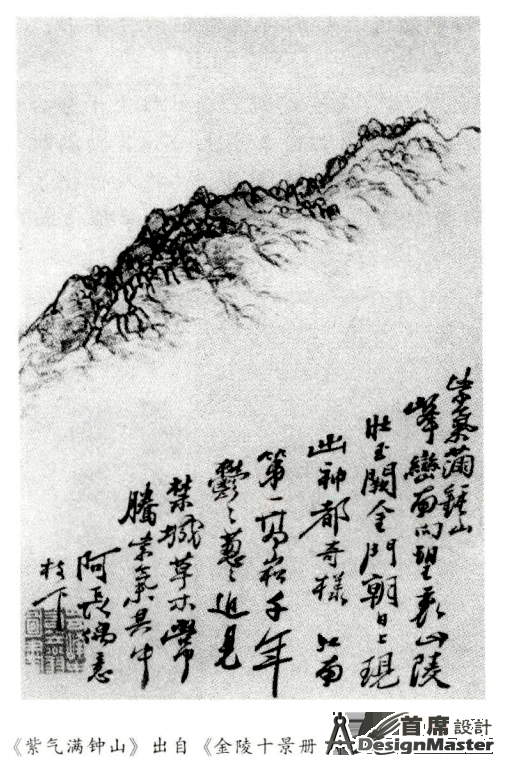 紫氣滿鍾山
峰巒面向望山陵
壯玉闕金門朝日上現
出神都奇樣 江南
第一高崧千年
鬱々葱々近見
禁城草木常
騰紫氣其中
阿長偶意
枝下
《紫气满钟山》出自《金陵十景册
首席設計
DesignMaster